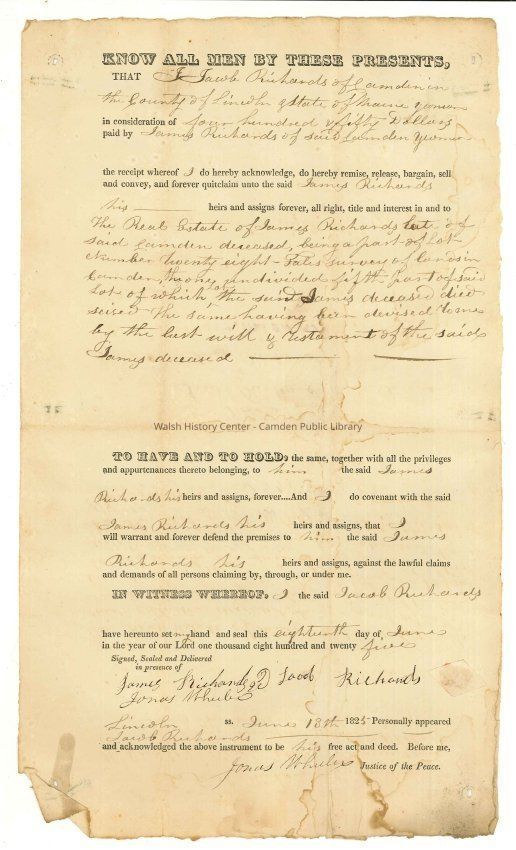 KNOW ALL MEN BY THESE PRESENTS,
THAT I Jacob Richards of Camden in
the County of Lincoln & State of Maine yeoman
in consideration of four hundred & fifty Dollars
paid by James Richards of said Camden Yeoman
the receipt whereof I do hereby acknowledge, do hereby remise, release, bargain, sell
and convey, and forever quitclaim unto the said James Richards
his heirs and assigns forever, all right, title and interest in and to
The Real Estate of James Richards late of
said Camden deceased, being a part of Lot
Number twenty eight - Fales survey of Lands in
Camden, the one undivided fifth part of said
Lot of which the said James deceased died
seized The same having been devised to me
by the last will & Testament of the said
James deceased
Walsh History Center - Camden Public Library
TO HAVE AND TO HOLD, the same, together with all the privileges
and appurtenances thereto belonging, to him the said James
Richards his heirs and assigns, forever....And I do covenant with the said
James Richards his heirs and assigns, that I
will warrant and forever defend the premises to him the said James
Richards his heirs and assigns, against the lawful claims
and demands of all persons claiming by, through, or under me.
IN WITNESS WHEREOF, I the said Jacob Richards
have hereunto set my hand and seal this eighteenth day of June
in the year of our Lord one thousand eight hundred and twenty five
Signed, Sealed and Delivered
in presence of
James Richards 2d Jacob Richards
Jonas Wheeler
Lincoln ss. June 18th 1825 Personally appeared
Jacob Richards
and acknowledged the above instrument to be his free act and deed. Before me,
Jonas Wheeler Justice of the Peace.